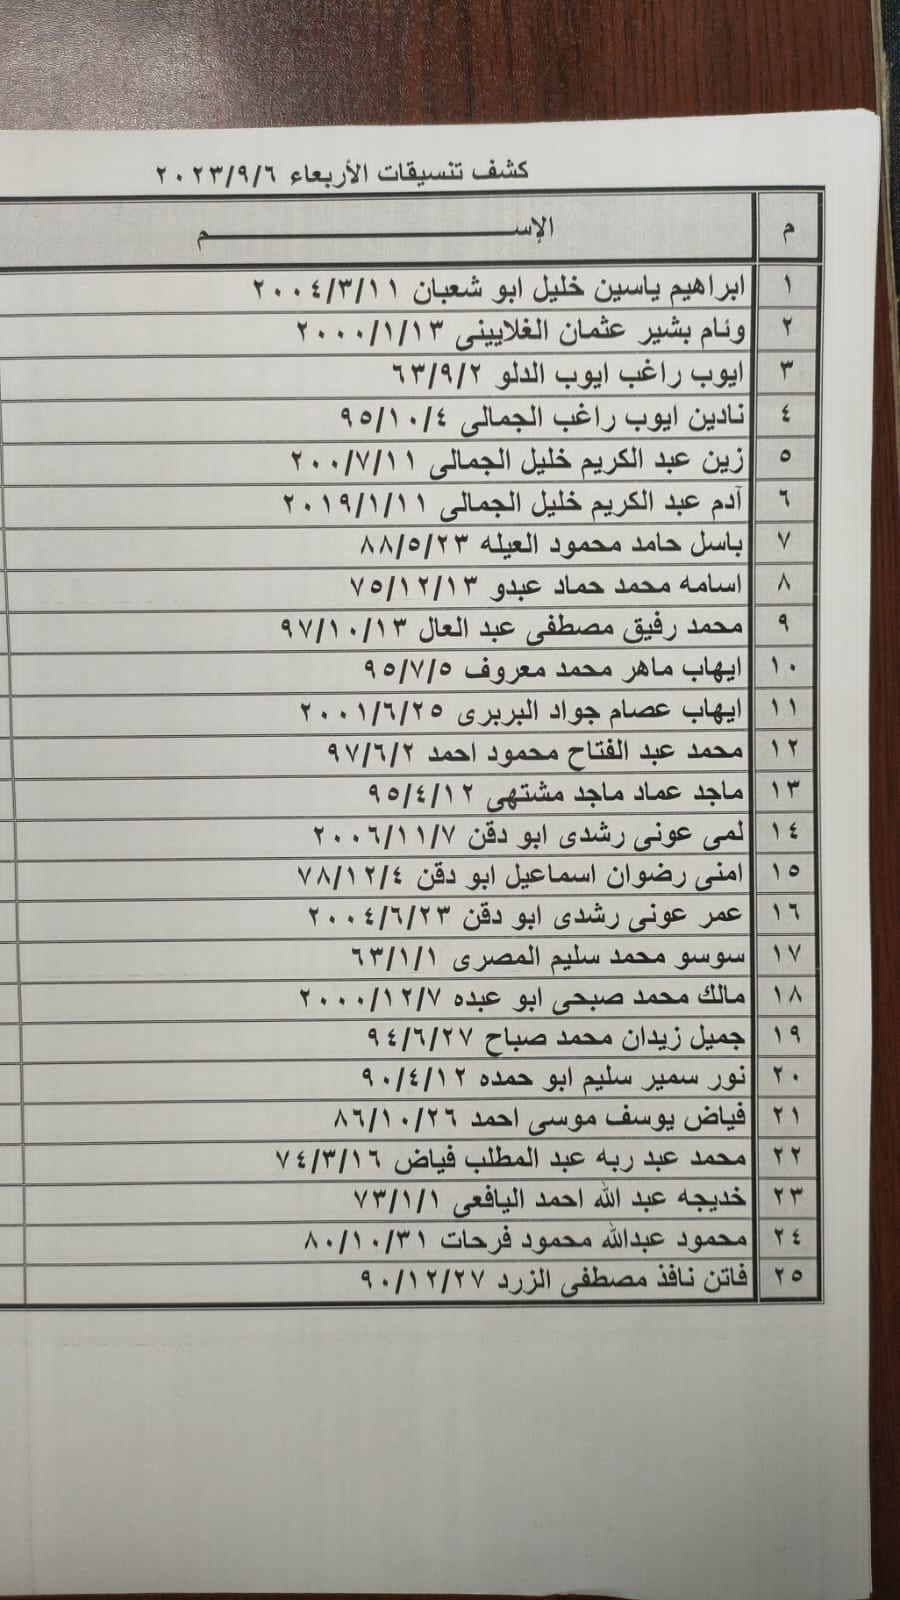 كشف تنسيقات الأربعاء ٢٠٢٣/٩/٦
م الإســـــــــــــــــــــم
١ ابراهيم ياسين خليل ابو شعبان ٢٠٠٤/٣/١١
٢ وئام بشير عثمان الغلاييني ٢٠٠٠/١/١٣
٣ ايوب راغب ايوب الدلو ٦٣/٩/٢
٤ نادين ايوب راغب الجمالى ٩٥/١٠/٤
٥ زين عبد الكريم خليل الجمالى ٢٠٠/٧/١١
٦ آدم عبد الكريم خليل الجمالى ٢٠١٩/١/١١
٧ باسل حامد محمود العيله ٨٨/٥/٢٣
٨ اسامه محمد حماد عبدو ٧٥/١٢/١٣
٩ محمد رفيق مصطفى عبد العال ٩٧/١٠/١٣
١٠ ايهاب ماهر محمد معروف ٩٥/٧/٥
١١ ايهاب عصام جواد البربرى ٢٠٠١/٦/٢٥
١٢ محمد عبد الفتاح محمود احمد ٩٧/٦/٢
١٣ ماجد عماد ماجد مشتهى ٩٥/٤/١٢
١٤ لمى عونى رشدى ابو دقن ٢٠٠٦/١١/٧
١٥ امنى رضوان اسماعيل ابو دقن ٧٨/١٢/٤
١٦ عمر عونى رشدى ابو دقن ٢٠٠٤/٦/٢٣
١٧ سوسو محمد سليم المصرى ٦٣/١/١
١٨ مالك محمد صبحى ابو عبده ٢٠٠٠/١٢/٧
١٩ جميل زيدان محمد صباح ٩٤/٦/٢٧
٢٠ نور سمير سليم ابو حمده ٩٠/٤/١٢
٢١ فياض يوسف موسى احمد ٨٦/١٠/٢٦
٢٢ محمد عبد ربه عبد المطلب فياض ٧٤/٣/١٦
٢٣ خديجه عبد الله احمد اليافعى ٧٣/١/١
٢٤ محمود عبدالله محمود فرحات ٨٠/١٠/٣١
٢٥ فاتن نافذ مصطفى الزرد ٩٠/١٢/٢٧